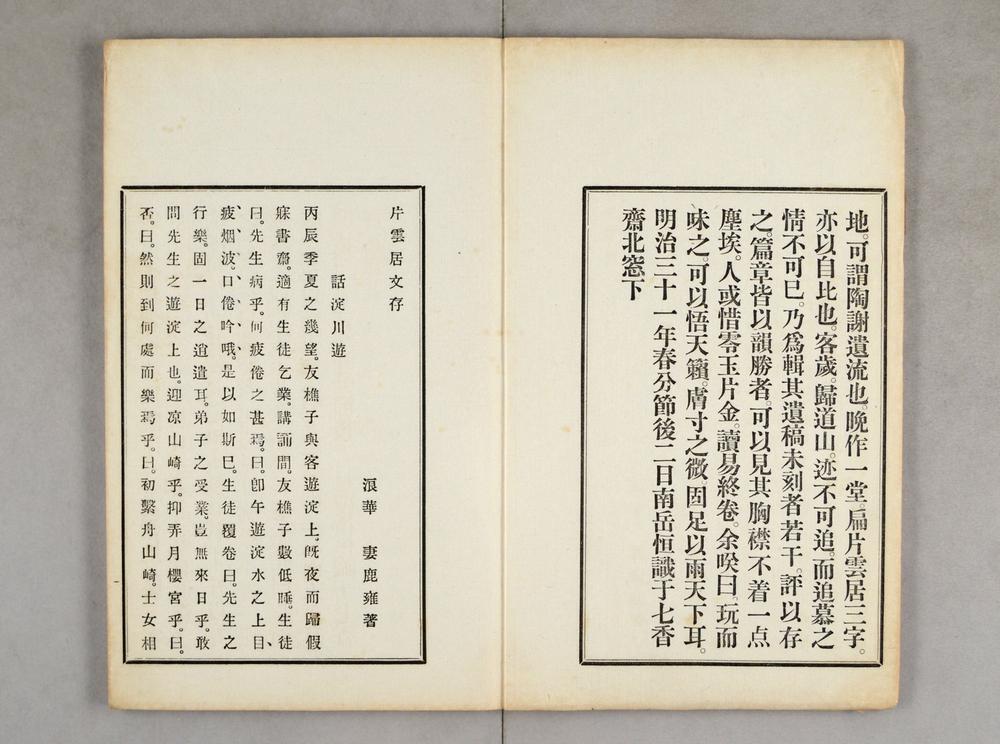 地。可謂陶謝遺流也。晚作一堂。扁片雲居三字。
亦以自比也。客歲。歸道山。迹不可追。而追慕之
情不可已。乃爲輯其遺稿未刻者若干。評以存
之。篇章皆以韻勝者。可以見其胸襟不着一点
塵埃。人或惜零玉片金。讀易終卷。余唉曰。玩而
味之。可以悟天籟。膚寸之微。固足以雨天下耳。
明治三十一年春分節後二日南岳恒識于七香
齋北窓下
片雲居文存
浪華 妻鹿雍著
話淀川遊
丙辰季夏之幾望。友樵子與客遊淀上。既夜而歸假
寐書齋。適有生徒乞業。講誦間。友樵子數低睡。生徒
曰。先生病乎。何疲倦之甚焉。曰。卽午遊淀水之上。目、
疲、烟、波。口、倦、吟、哦。是以如斯巳。生徒覆卷曰。先生之
行樂。固一日之逍遣耳。弟子之受業。豈無來日乎。敢
問先生之遊淀上也。迎凉山崎乎。抑弄月櫻宮乎。曰。
否。曰。然則到何處而樂焉乎。曰。初繫舟山崎。士女相